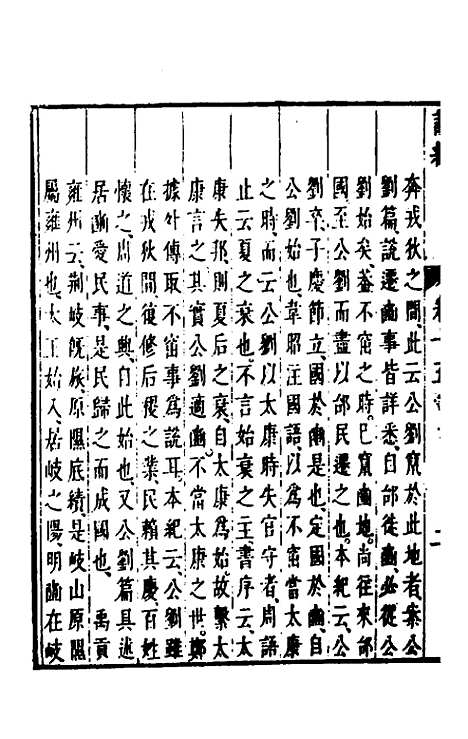 奔戎狄之間、此云公劉竄於此地者、案公
劉篇說遷豳事皆詳悉、自邰徙豳、必從公
劉始矣、蓋不窋之時、巳竄豳地、尚往來邰
國、至公劉而盡以邰民遷之也。本紀云、公
劉卒、子慶節立、國於豳是也、定國於豳、自
公劉始也、韋昭注國語、以爲不窋當太康
之時、而云公劉以太康時失官守者、周語
止云夏之衰也、不言始衰之主、書序云、太
康失邦、則夏后之衰、自太康爲始、故繫太
康言之、其實公劉適豳、不當太康之世。鄭
據外傳、取不窋事爲說耳、本紀云、公劉雖
在戎狄間、復修后稷之業、民賴其慶、百姓
懷之、周道之興、自此始也、又公劉篇具述
居豳愛民事、是民歸之而成國也、 禹貢
雍州云、荆岐旣旅、原隰厎績、是岐山原隰
屬雍州也、大王始入居岐之陽、明豳在岐